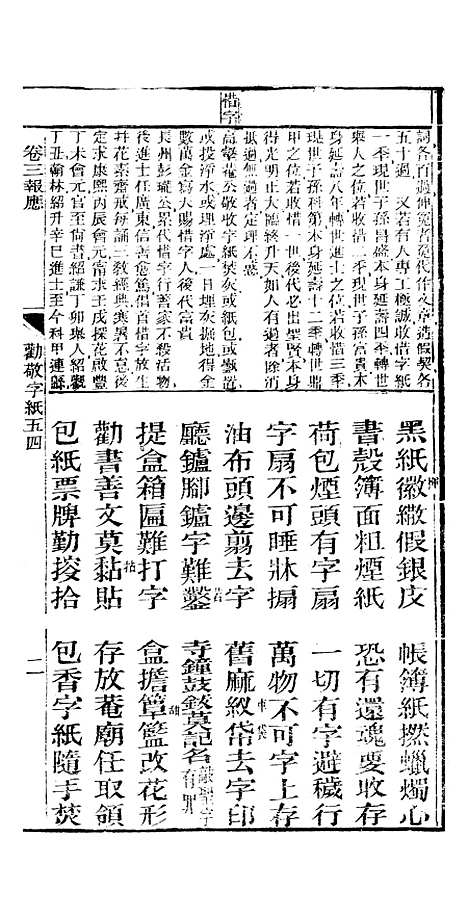 惜字
詞各百過伸冤者寃代作文章造假契各
五十過 又若有人專工極誠收惜字紙
一季現世子孫昌盛本身延壽四季轉世
爽人之位若收惜一世現世子孫富貴本
身延壽八年轉世進士之位若收惜三季
現世子孫科第本身延壽十二季轉世鼎
甲之位若收惜一世後代必出聖賢本身
得光明正大臨終升天如人有過者除消
抵過無過者定理不忒
高擎菴公敬收字紙焚灰或紙包或甕置
或投淨水或埋淨處一日埋灰掘地得金
數萬金寫天賜惜字人後代富貴
長州彭瓏公累代惜字人家不殺活物
後進士任廣東信善愈篤倡首惜字放生
拜花素齋戒每誦三教經典寒暑不已寅
定求康熙丙辰會元甯求壬戌探花啟豐
丁未會元官尚書紹謙丁卯舉人紹觀
丁丑翰林紹升辛巳進士至今科甲連緜
卷三報應
勸敬字紙五四
二
黑紙徽繖假銀皮 帳簿紙撚蠟燭心
書殼簿面粗煙紙 恐有還魂要收存
荷包煙頭有字扇 一切有字避穢行
字扇不可睡牀搧 萬物不可字上存
油布頭邊翦去字 舊麻紋帒去字印
廳鑪腳鑪字難鑿 寺鐘鼓鈸莫記名
提盒箱匾難打字 盒擔簞籃改花形
勸書善文莫黏貼 存放菴廟任取領
包紙票牌勤揀拾 包香字紙隨手焚